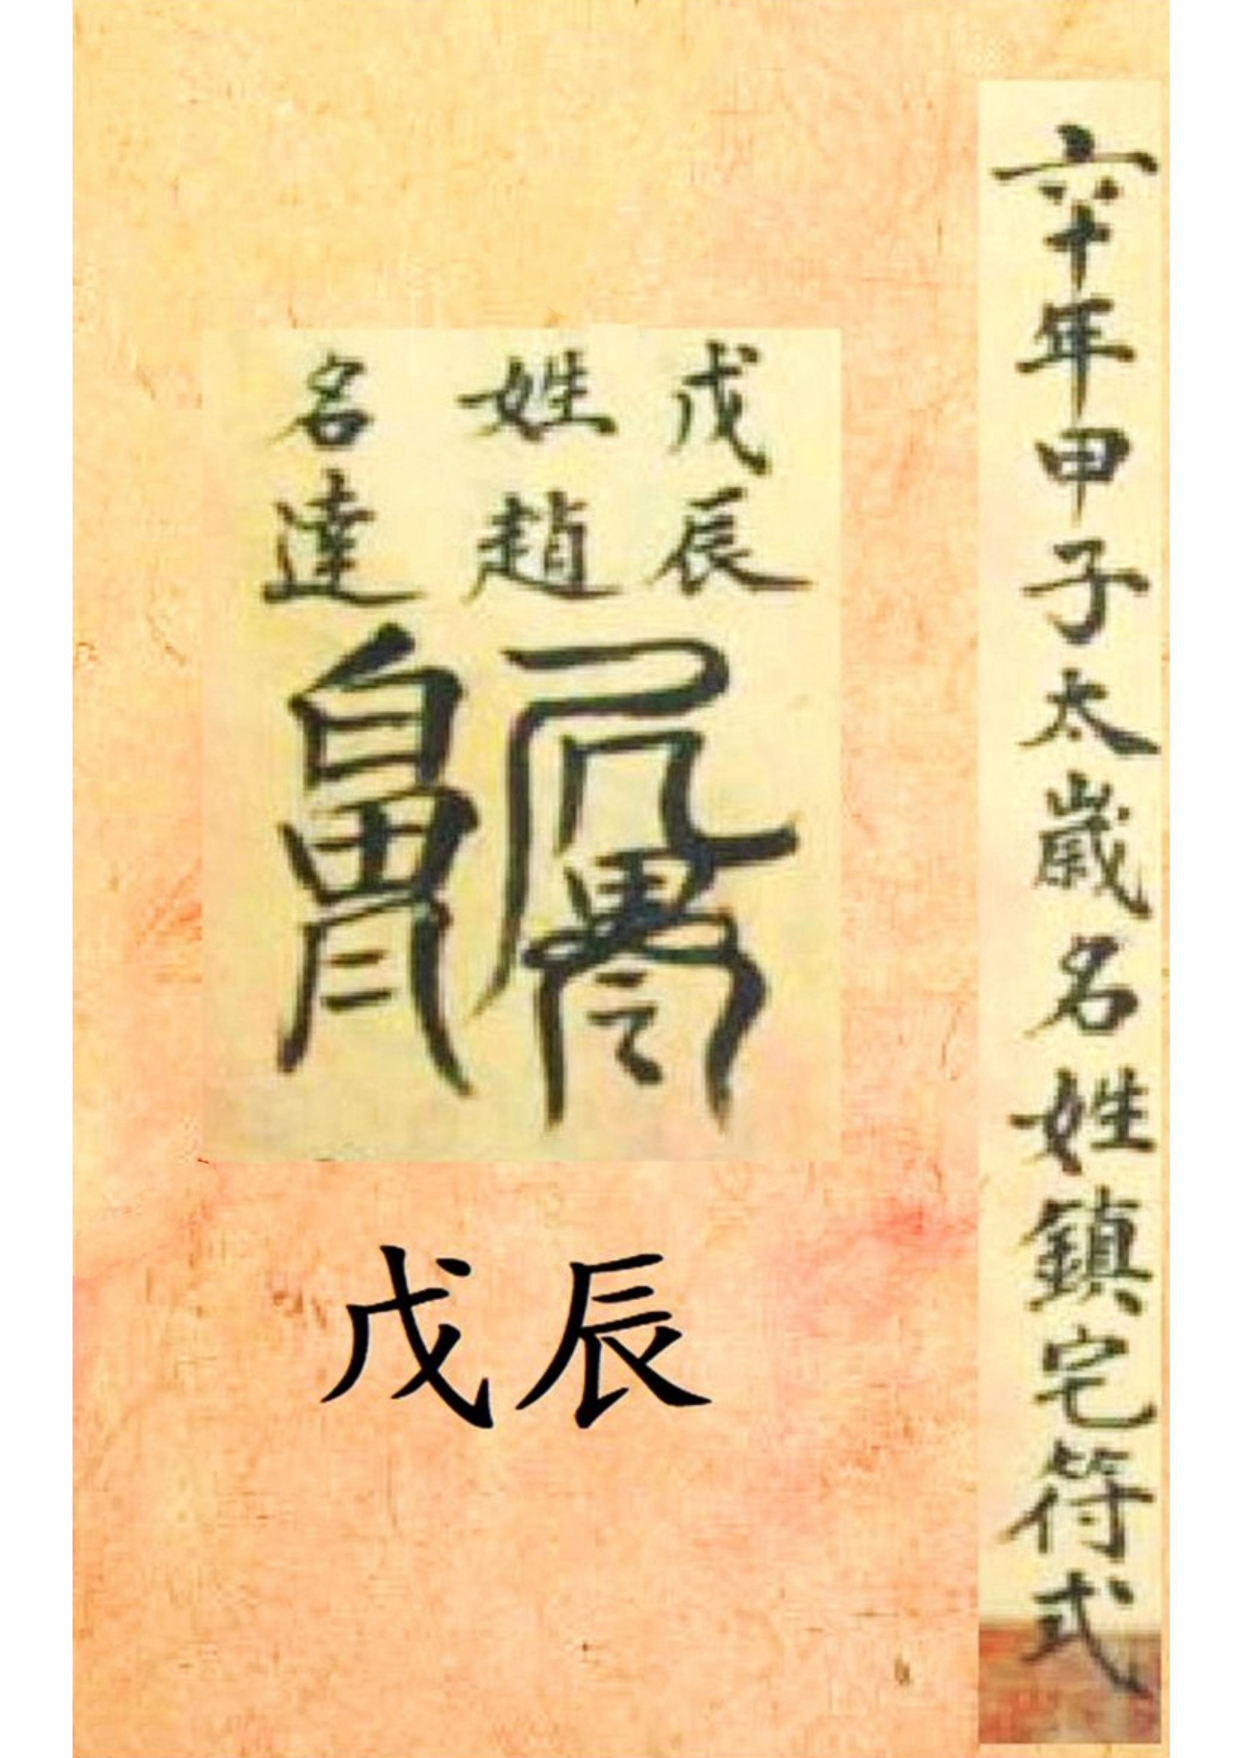 六十年甲子太歲名姓鎮宅符式
戊辰
姓趙
名達
戊辰